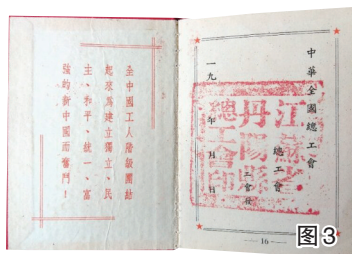 全中國工人階級團結
起來為建立獨立、民
主、和平、統一、富
強的新中國而奮鬥！
中華全國總工會
總工會
一九 年 月 日
江蘇省
丹陽縣
總工會印
— 16 —
图3